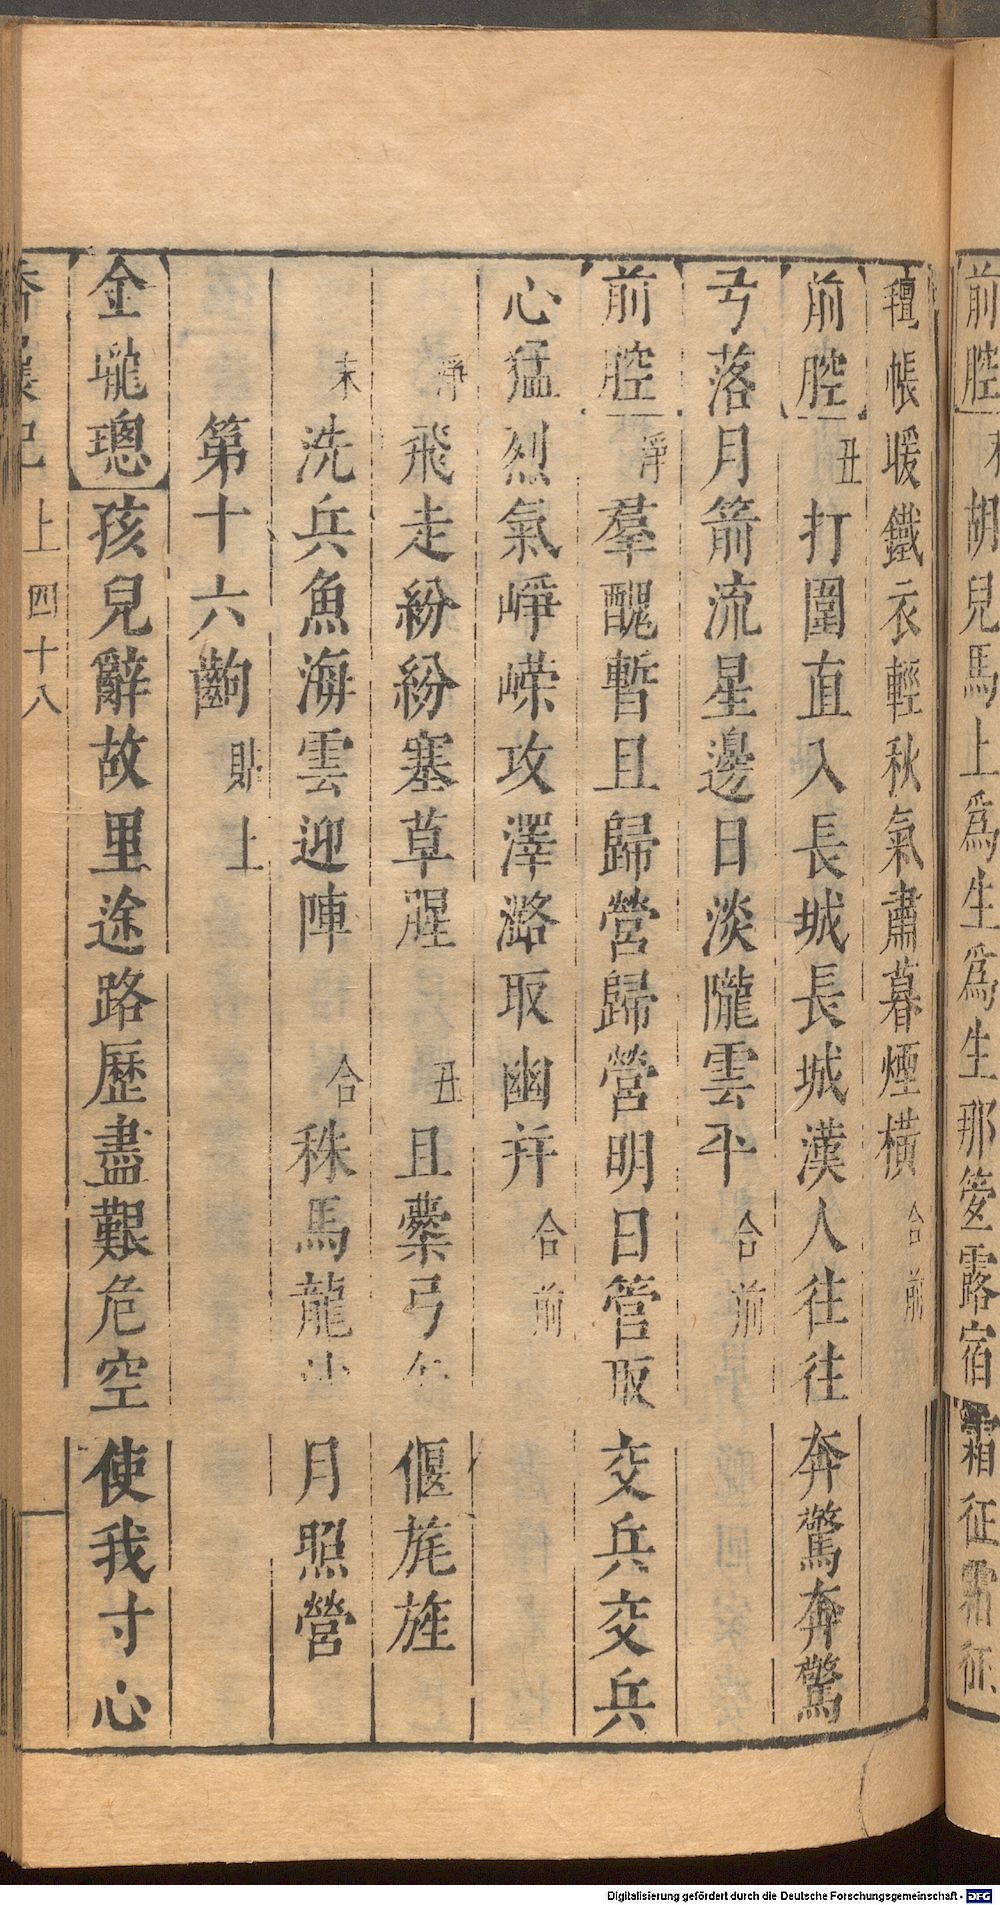 前腔 胡兒馬上爲生爲生那管露宿霜征霜征
氊帳暖鐵衣輕秋氣肅暮煙橫 合前
前腔 丑 打圍直入長城長城漢人往往奔驚奔驚
弓落月箭流星邊日淡隴雲平 合前
前腔 淨 羣醜暫且歸營歸營明日管取交兵交兵
心猛烈氣崢嶸攻澤潞取幽并 合前
淨 飛走紛紛塞草腥 丑 且櫜弓 偃旄旌
末 洗兵魚海雲迎陣 合 秣馬龍沙月照營
第十六齣 貼上
金瓏璁 孩兒辭故里途路歷盡艱危空使我寸心
香囊記 上 四十八
Digitalisierung gefördert durch die Deutsche Forschungsgemeinschaft - DFG